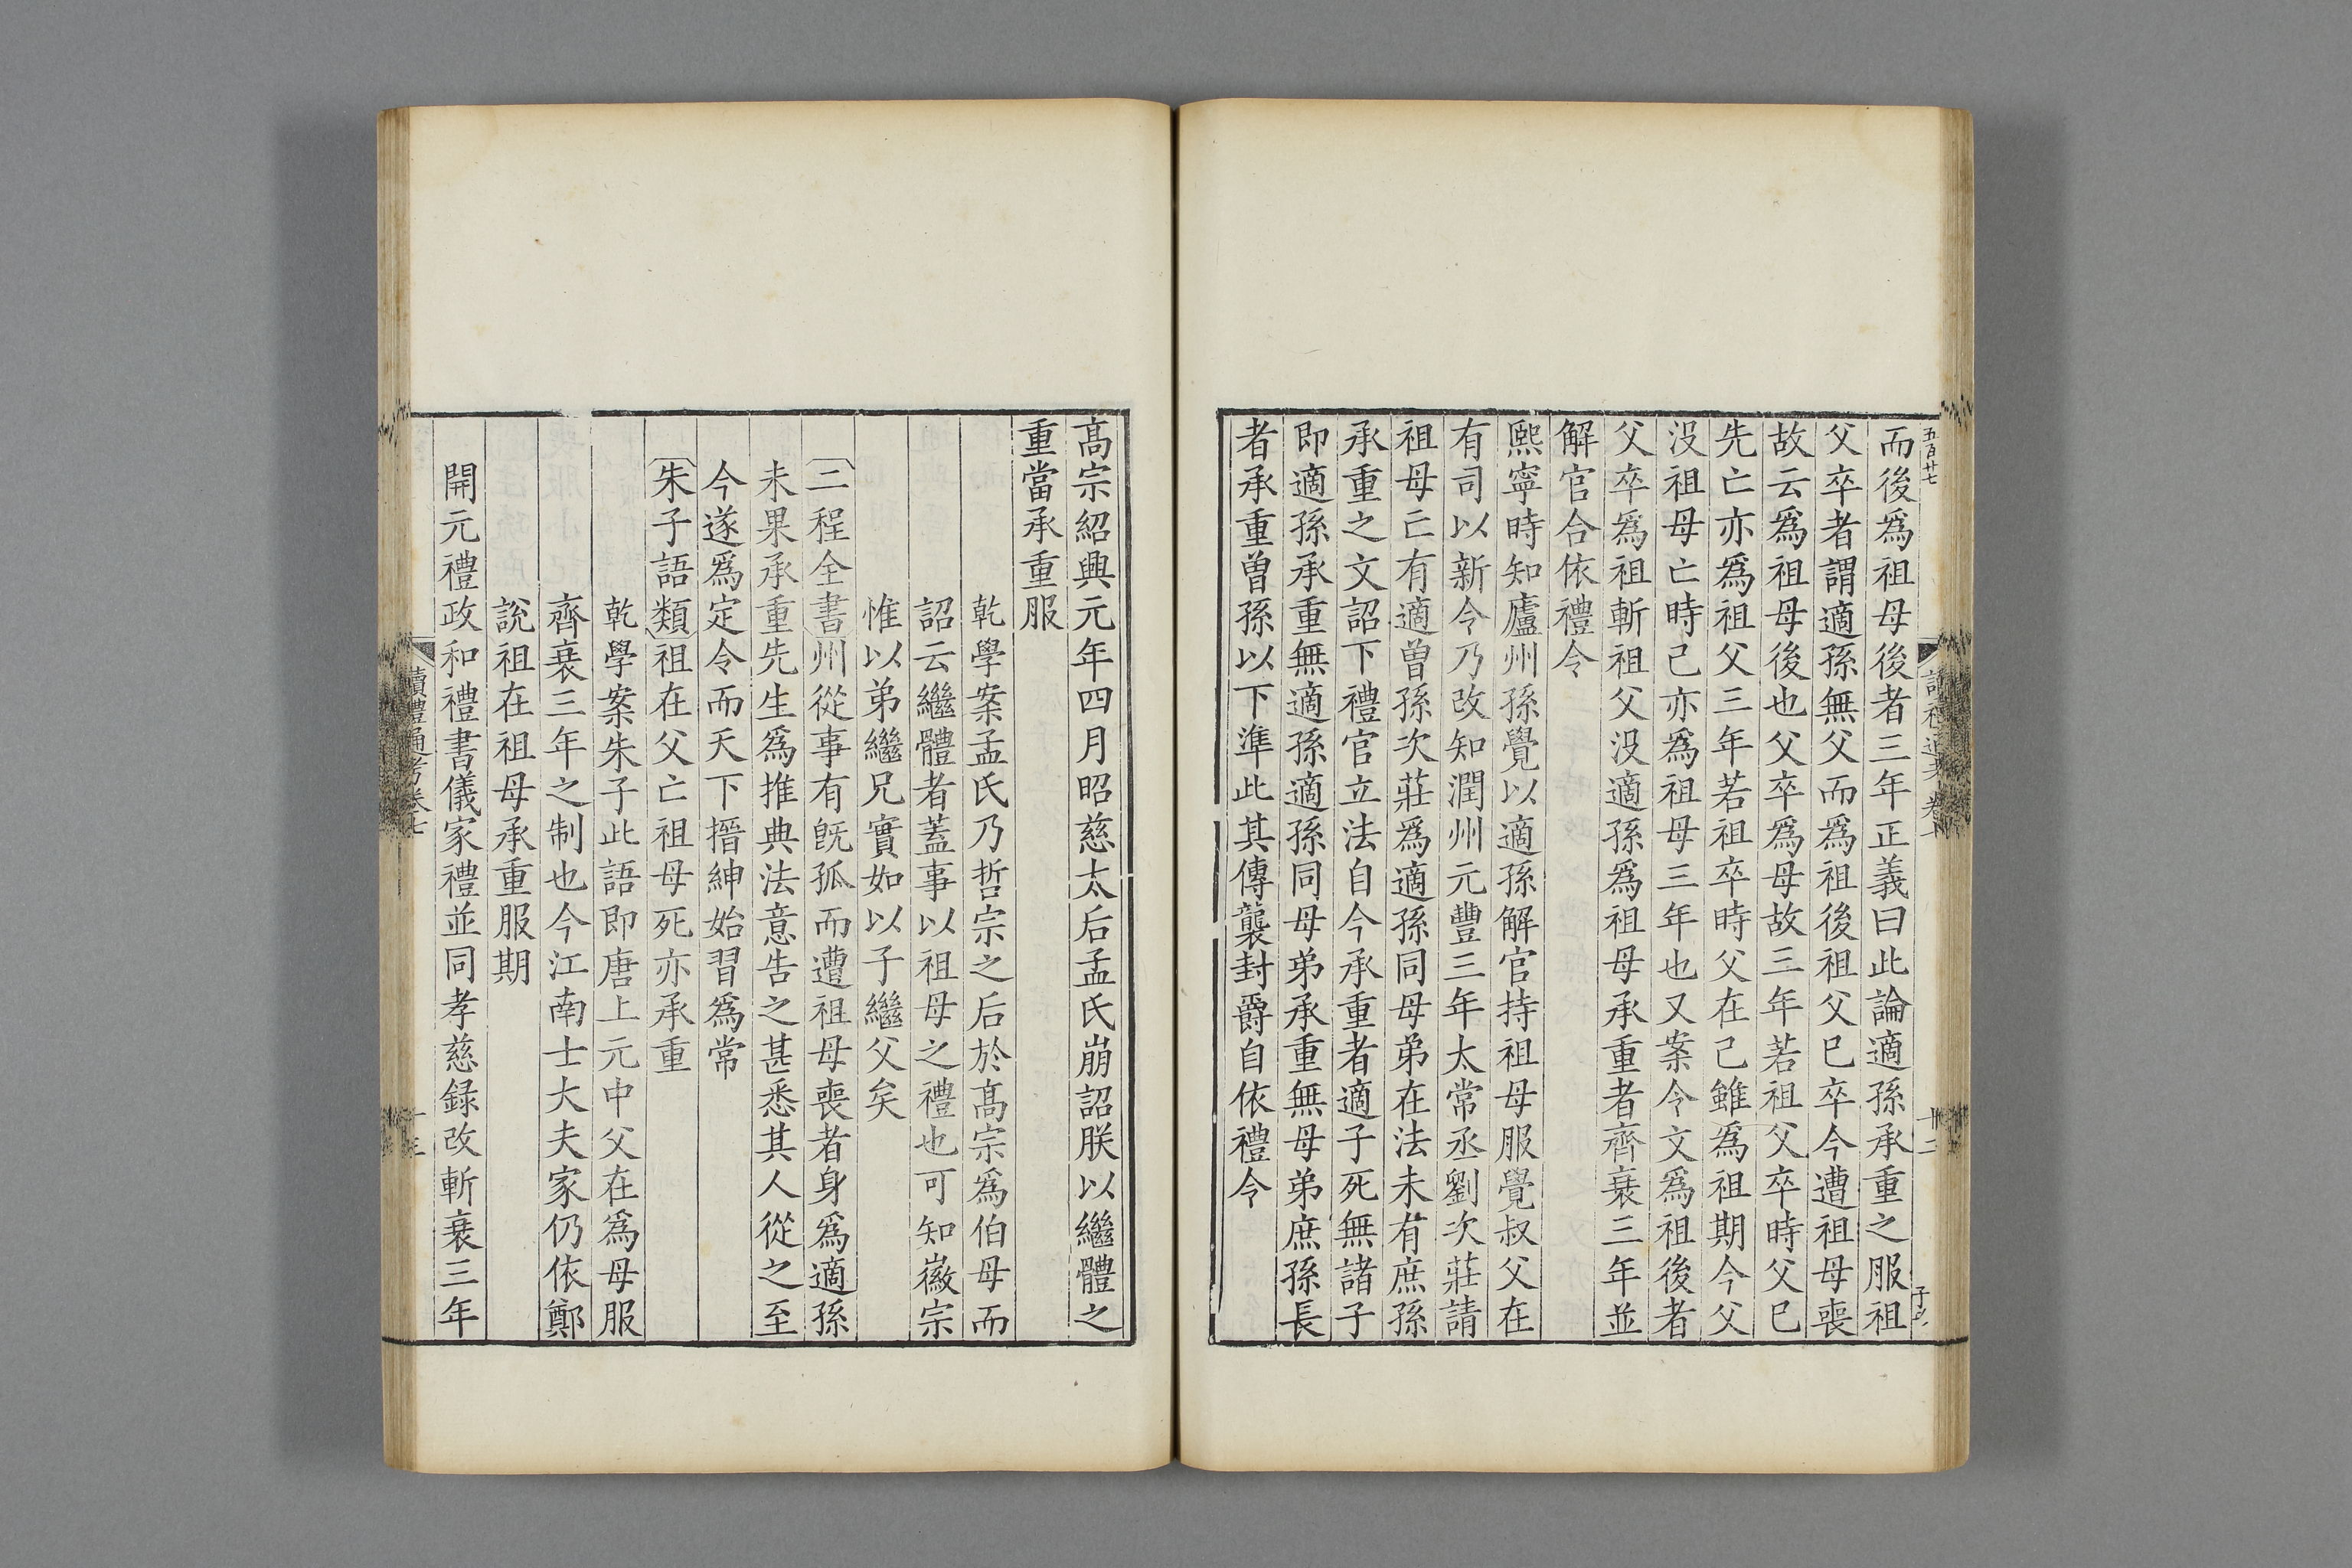 五百廿七
而後爲祖母後者三年正義曰此論適孫承重之服祖
父卒者謂適孫無父而爲祖後祖父已卒今遭祖母喪
故云爲祖母後也父卒爲母故三年若祖父卒時父已
先亡亦爲祖父三年若祖卒時父在己雖爲祖期今父
没祖母亡時己亦爲祖母三年也又案令文爲祖後者
父卒爲祖斬祖父没適孫爲祖母承重者齊衰三年並
解官合依禮令
熙寧時知廬州孫覺以適孫解官持祖母服覺叔父在
有司以新令乃改知潤州元豐三年太常丞劉次莊請
祖母亡有適曾孫次莊爲適孫同母弟在法未有庶孫
承重之文詔下禮官立法自今承重者適子死無諸子
即適孫承重無適孫適孫同母弟承重無母弟庶孫長
者承重曾孫以下準此其傳襲封爵自依禮令
高宗紹興元年四月昭慈太后孟氏崩詔朕以繼體之
重當承重服
乾學案孟氏乃哲宗之后於高宗爲伯母而
詔云繼體者蓋事以祖母之禮也可知徽宗
惟以弟繼兄實如以子繼父矣
二程全書州從事有旣孤而遭祖母喪者身爲適孫
未果承重先生爲推典法意告之甚悉其人從之至
今遂爲定令而天下搢紳始習爲常
朱子語類祖在父亡祖母死亦承重
乾學案朱子此語即唐上元中父在爲母服
齊衰三年之制也今江南士大夫家仍依鄭
說祖在祖母承重服期
開元禮政和禮書儀家禮並同孝慈録改斬衰三年
讀禮通考卷七